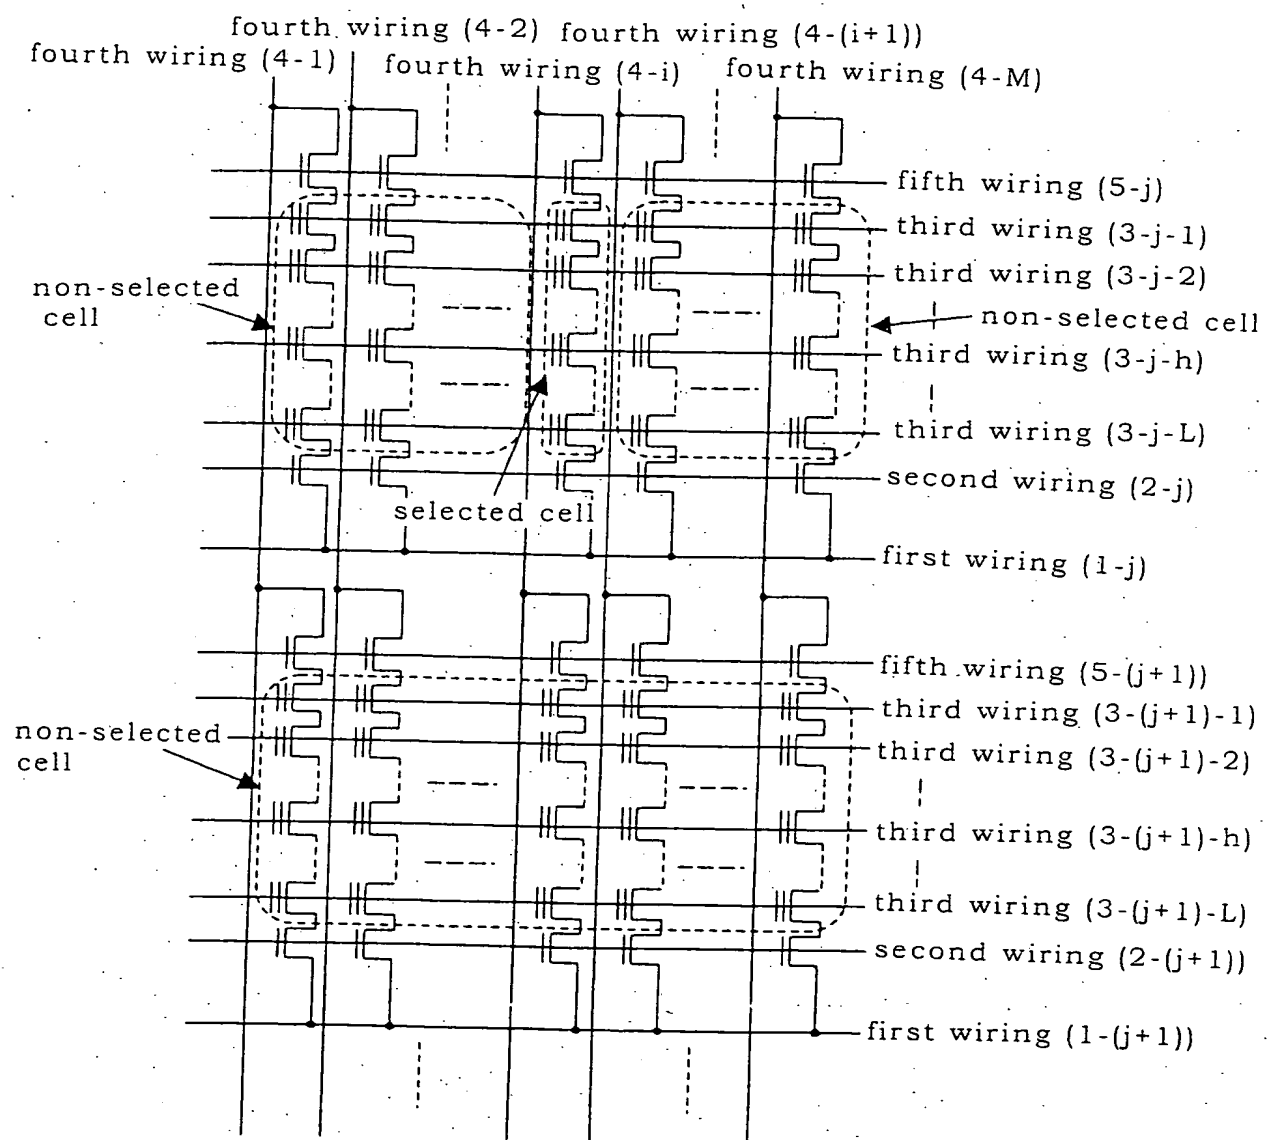 fourth wiring (4-2) fourth wiring (4-(i+1))
fourth wiring (4-1) fourth wiring (4-i) fourth wiring (4-M)
fifth wiring (5-j)
third wiring (3-j-1)
third wiring (3-j-2)
non-selected
cell
non-selected cell
third wiring (3-j-h)
third wiring (3-j-L)
second wiring (2-j)
selected cell
first wiring (1-j)
fifth wiring (5-(j+1))
third wiring (3-(j+1)-1)
non-selected
cell
third wiring (3-(j+1)-2)
third wiring (3-(j+1)-h)
third wiring (3-(j+1)-L)
second wiring (2-(j+1))
first wiring (1-(j+1))